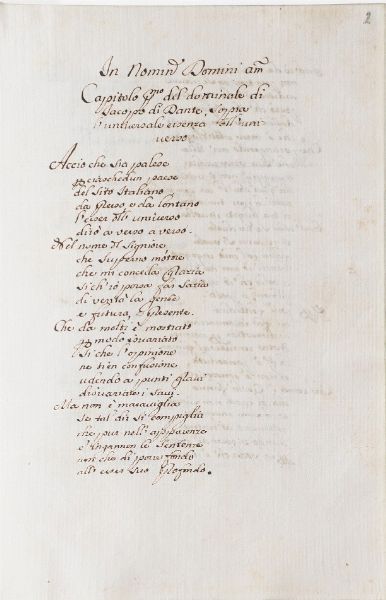 2
In Nomine Domini am
Capitolo pmo del dottrinale di
Jacopo di Dante, sopra
l'universale essenza dell' uni
verso
Acciò che sia palese
ciaschedun paese
del sito Italiano
da presso, e da lontano
l'esser dell' universo
dirò a verso a verso.
Nel nome del Signore,
che superno motore
che mi conceda grazia
si ch' io possa far sazia
di verità la gente
e futura, e presente.
Che da molti è mostrato
modo svariato
Si che l'opinione
ne tien confusione
udendo a punti gravi
disvariare i savi.
Ma non è maraviglia
se tal dir si compiglia
che pur nell' apparenze
s' ingannon le sentenze
non che di poner fondo
all' esser suo profondo.